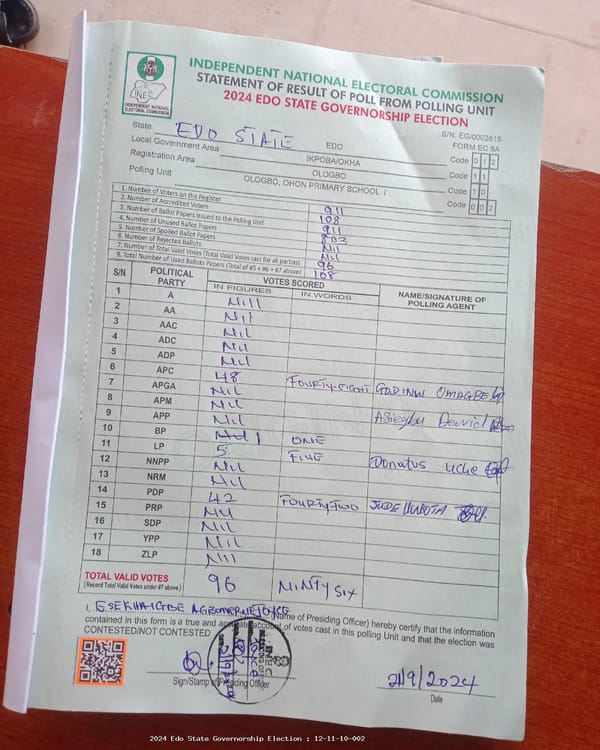 INDEPENDENT NATIONAL ELECTORAL COMMISSION
STATEMENT OF RESULT OF POLL FROM POLLING UNIT
2024 EDO STATE GOVERNORSHIP ELECTION
INEC
INDEPENDENT NATIONAL ELECTORAL COMMISSION
S/N: EG/0002615
FORM EC 8A
State EDO STATE EDO Code 0 1 2
Local Government Area IKPOBA/OKHA Code 1 1
Registration Area OLOGBO Code 1 0
Polling Unit OLOGBO, OHON PRIMARY SCHOOL I Code 0 0 2
1. Number of Voters on the Register 911
2. Number of Accredited Voters 108
3. Number of Ballot Papers Issued to the Polling Unit 911
4. Number of Unused Ballot Papers 803
5. Number of Spoiled Ballot Papers Nil
6. Number of Rejected Ballots Nil
7. Number of Total Valid Votes (Total Valid Votes cast for all parties) 96
8. Total Number of Used Ballots Papers (Total of #5 + #6 + #7 above) 108
S/N POLITICAL PARTY VOTES SCORED NAME/SIGNATURE OF POLLING AGENT
IN FIGURES IN WORDS
1 A Nill
2 AA Nil
3 AAC Nil
4 ADC Nil
5 ADP Nil
6 APC 48 FOURTY-EIGHT GODINW OMAGBE
7 APGA Nil
8 APM Nil Asiegbu David
9 APP Nil
10 BP 1 ONE
11 LP 5 FIVE Donatus Uche
12 NNPP Nil
13 NRM Nil
14 PDP 42 FOURTY TWO JUDE
15 PRP Nil
16 SDP Nil
17 YPP Nil
18 ZLP Nil
TOTAL VALID VOTES 96 NINTY SIX
(Record Total Valid Votes under #7 above)
I, (Name of Presiding Officer) hereby certify that the information
contained in this form is a true and accurate account of votes cast in this polling Unit and that the election was
CONTESTED/NOT CONTESTED
Sign/Stamp of Presiding Officer
21/9/2024
Date
2024 Edo State Governorship Election : 12-11-10-002